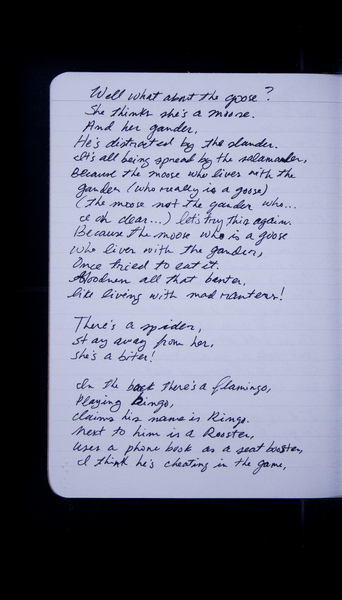 Well what about the goose?
She thinks she's a moose.
And her gander,
He's distracted by the slander.
It's all being spread by the salamander,
Because the moose who lives with the
gander (who really is a goose)
(the moose not the gander who...
oh clear...) let's try this again.
Because the moose who is a goose
who lives with the gander,
Once tried to eat it.
all that banter,
like living with mad ranters!
There's a spider,
stay away from her,
she's a biter!
In the back there's a flamingo,
Playing Bingo,
claims his name is Ringo.
Next to him is a Rooster,
uses a phone book as a seat booster,
I think he's cheating in the game,